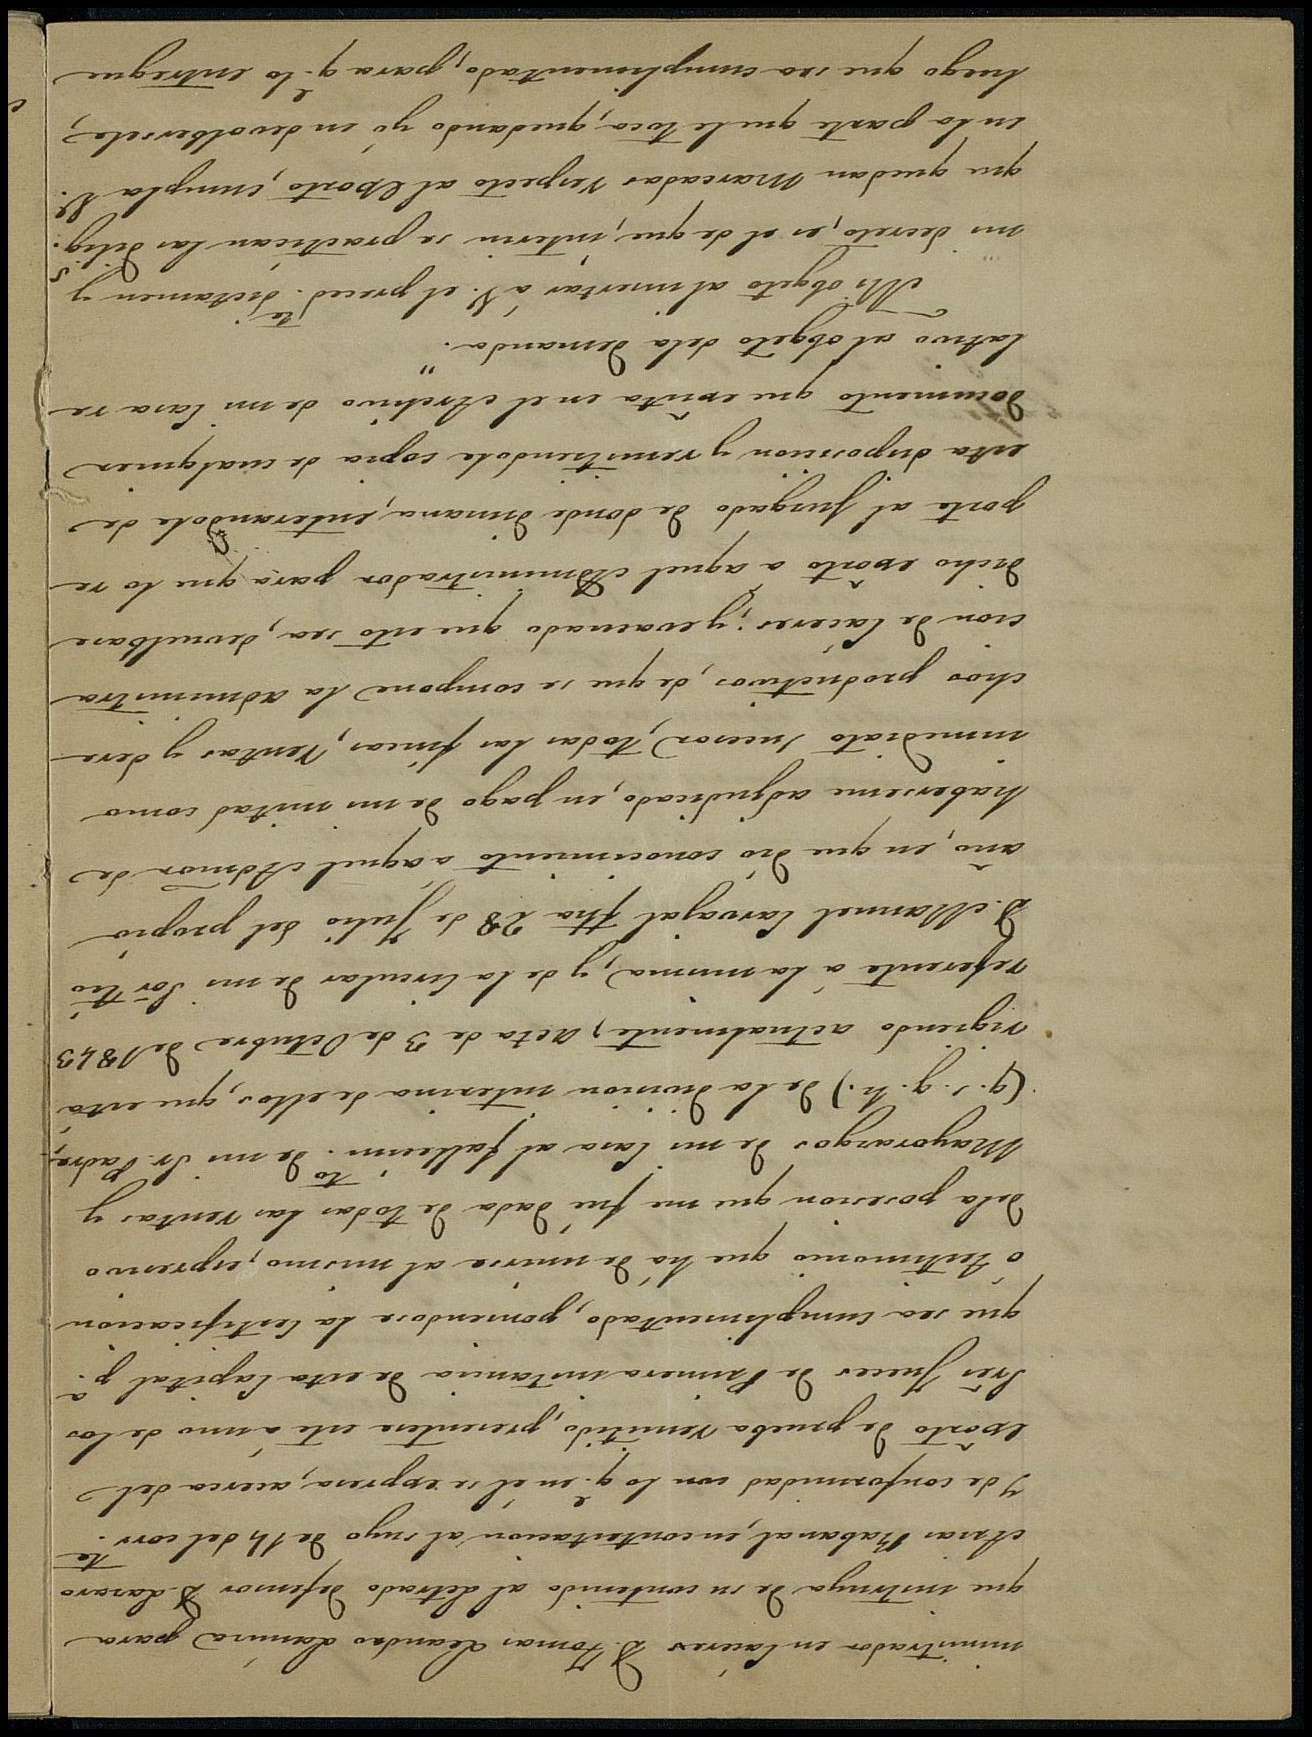 ministrador en Cáceres D. Tomas Leandro Lamina para
que instruya de su contenido al Letrado defensor D. Lazaro
Arias Rabanal, en contestacion al suyo de 14 del corr.te
Y de conformidad con lo q.e en él se expresa, acerca del
Exorto de prueba remitido, presentese este á uno de los
Sres Jueces de Primera instancia de esta Capital p.a
que sea cumplimentado, poniendose la Certificacion
ó testimonio que há de unirse al mismo, espresivo
dela posesion que me fué dada de todas las rentas y
Mayorazgos de mi Casa al fallecim.to de mi Sr. Padre,
(q. s. g. h.) de la division interina de ellos, que está
rigiendo actualmente, acta de 3 de Octubre de 1843
referente á la misma, y de la Circular de mi Sor tio
D. Manuel Carvajal fha 28 de Julio del propio
año, en que dió conocimiento á aquel Admor de
haberseme adjudicado, en pago de mi mitad como
inmediato sucesor, todas las fincas, rentas y dere
chos productivos, de que se compone la administra
cion de Cáceres; y evacuado que esto sea, devuelbase
dicho exorto á aquel Administrador para que lo re
porte al Juzgado de donde dimana, enterandole de
esta disposicion y remitiendole copia de cualquier
documento que exista en el Archivo de mi Casa re
lativo al objeto dela demanda."
Mi objeto al insertar á V. el preced.te dictamen y
mi decreto, es el de que, interin se practican las dilig.s
que quedan marcadas respecto al Exorto, cumpla V.
en la parte que le toca, quedando yó en devolversele,
luego que sea cumplimentado, para q.e lo entregue